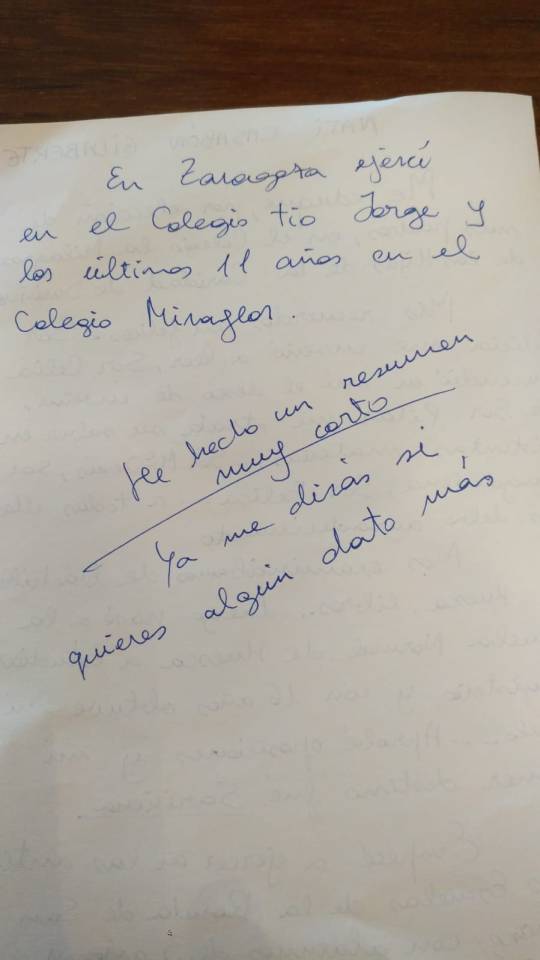 En Zaragoza ejercí
en el Colegio tio Jorge y
los últimos 11 años en el
Colegio Miraflor.
He hecho un resumen
muy corto
Ya me dirás si
quieres algún dato más